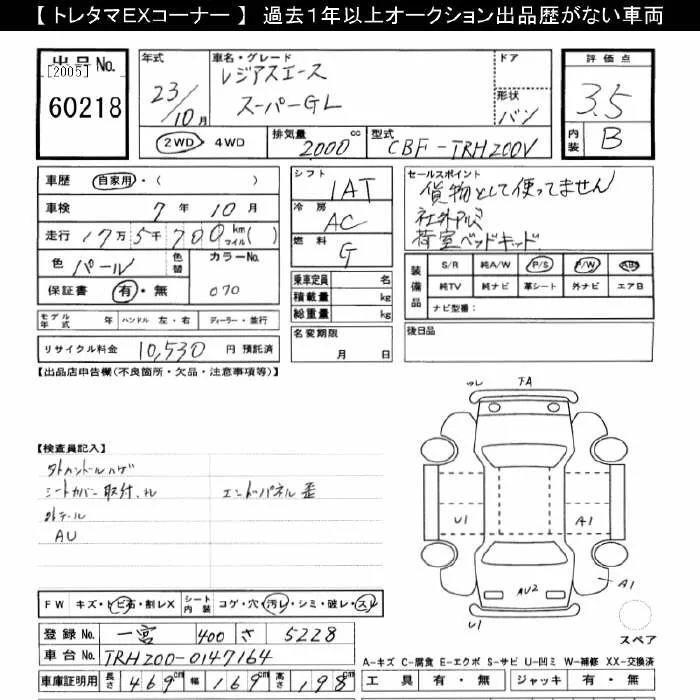 【 トレタマEXコーナー 】 過去1年以上オークション出品歴がない車両
出品No.
[2005]
60218
年式
23/10月
車名・グレード
レジアスエース
スーパーGL
ドア
形状
バン
評価点
3.5
内装
B
2WD・4WD
排気量
2000 cc
型式
CBF-TRH200V
車歴 自家用・( )
車検 7年10月
走行 17万5千700 km マイル( )
色 パール 色替
カラーNo.
070
保証書 有・無
シフト
1AT
冷房
AC
燃料
G
乗車定員 名
積載量 kg
総重量 kg
セールスポイント
貨物として使ってません
社外アルミ
荷室ベッドキット
装備品
S/R 純A/W P/S P/W ABS
純TV 純ナビ 革シート 外ナビ エアB
ナビ型番:
モデル年式 年 ハンドル 左・右 ディーラー・並行
リサイクル料金 10,530 円 預託済
名変期限
月 日
後日品
【出品店申告欄(不良箇所・欠品・注意事項等)】
【検査員記入】
シートカバー取付
エンドパネル歪
外テール
AU
ツレ
下A
U1
A1
AU2
A1
U1
スペア
FW キズ・トビ石・割レX
シート内装 コゲ・穴・汚レ・シミ・破レ・スレ
登録No. 一宮 400 さ 5228
車台No. TRH200-0147164
車庫証明用 長さ 469cm 幅 169cm 高さ 198cm
A-キズ C-腐食 E-エクボ S-サビ U-凹ミ W-補修 XX-交換済
工具 有・無 ジャッキ 有・無